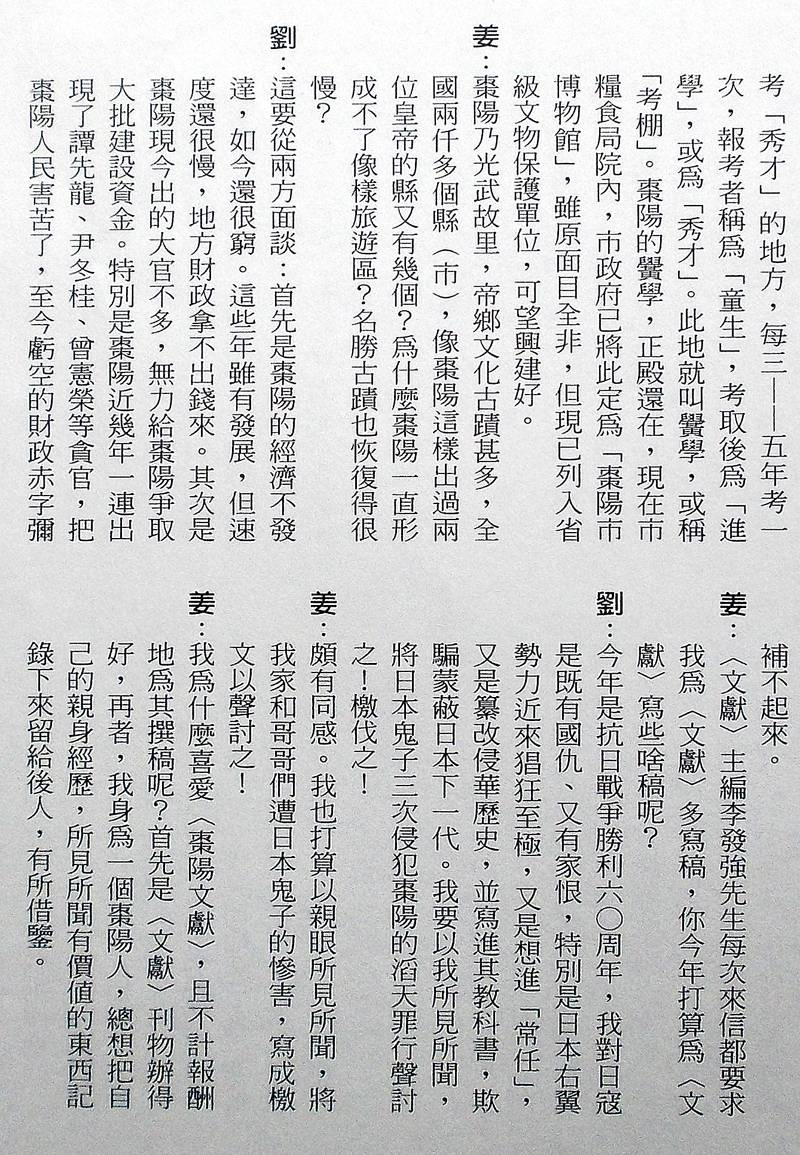 考「秀才」的地方，每三——五年考一
次，報考者稱爲「童生」，考取後爲「進
學」，或爲「秀才」。此地就叫黌學，或稱
「考棚」。棗陽的黌學，正殿還在，現在市
糧食局院內，市政府已將此定爲「棗陽市
博物館」，雖原面目全非，但現已列入省
級文物保護單位，可望興建好。
姜：棗陽乃光武故里，帝鄉文化古蹟甚多，全
國兩仟多個縣（市），像棗陽這樣出過兩
位皇帝的縣又有幾個？爲什麼棗陽一直形
成不了像樣旅遊區？名勝古蹟也恢復得很
慢？
劉：這要從兩方面談：首先是棗陽的經濟不發
達，如今還很窮。這些年雖有發展，但速
度還很慢，地方財政拿不出錢來。其次是
棗陽現今出的大官不多，無力給棗陽爭取
大批建設資金。特別是棗陽近幾年一連出
現了譚先龍、尹冬桂、曾憲榮等貪官，把
棗陽人民害苦了，至今虧空的財政赤字彌
補不起來。
姜：〈文獻〉主編李發強先生每次來信都要求
我爲〈文獻〉多寫稿，你今年打算爲〈文
獻〉寫些啥稿呢？
劉：今年是抗日戰爭勝利六〇周年，我對日寇
是既有國仇、又有家恨，特別是日本右翼
勢力近來猖狂至極，又是想進「常任」，
又是纂改侵華歷史，並寫進其教科書，欺
騙蒙蔽日本下一代。我要以我所見所聞，
將日本鬼子三次侵犯棗陽的滔天罪行聲討
之！檄伐之！
姜：頗有同感。我也打算以親眼所見所聞，將
我家和哥哥們遭日本鬼子的慘害，寫成檄
文以聲討之！
姜：我爲什麼喜愛〈棗陽文獻〉，且不計報酬
地爲其撰稿呢？首先是〈文獻〉刊物辦得
好，再者，我身爲一個棗陽人，總想把自
己的親身經歷，所見所聞有價值的東西記
錄下來留給後人，有所借鑒。